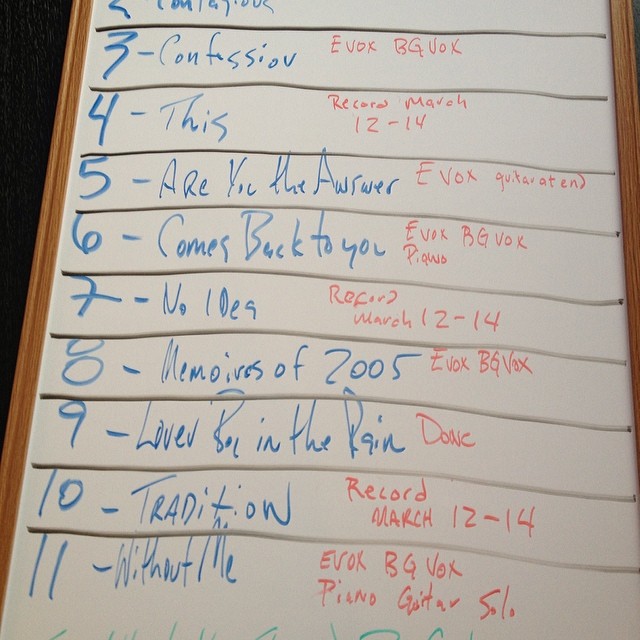 2 Contagious
3 - Confession Evox BGVox
4 - This Record March
12-14
5 - Are You the Answer Evox guitar at end
6 - Comes Back to you Evox BGVox
Piano
7 - No Idea Record
March 12-14
8 - Memoires of 2005 Evox BGVox
9 - Lover Boy in the Rain Done
10 - TRADiTiON Record
MARCH 12-14
11 - Without Me Evox BG Vox
Piano Guitar Solo